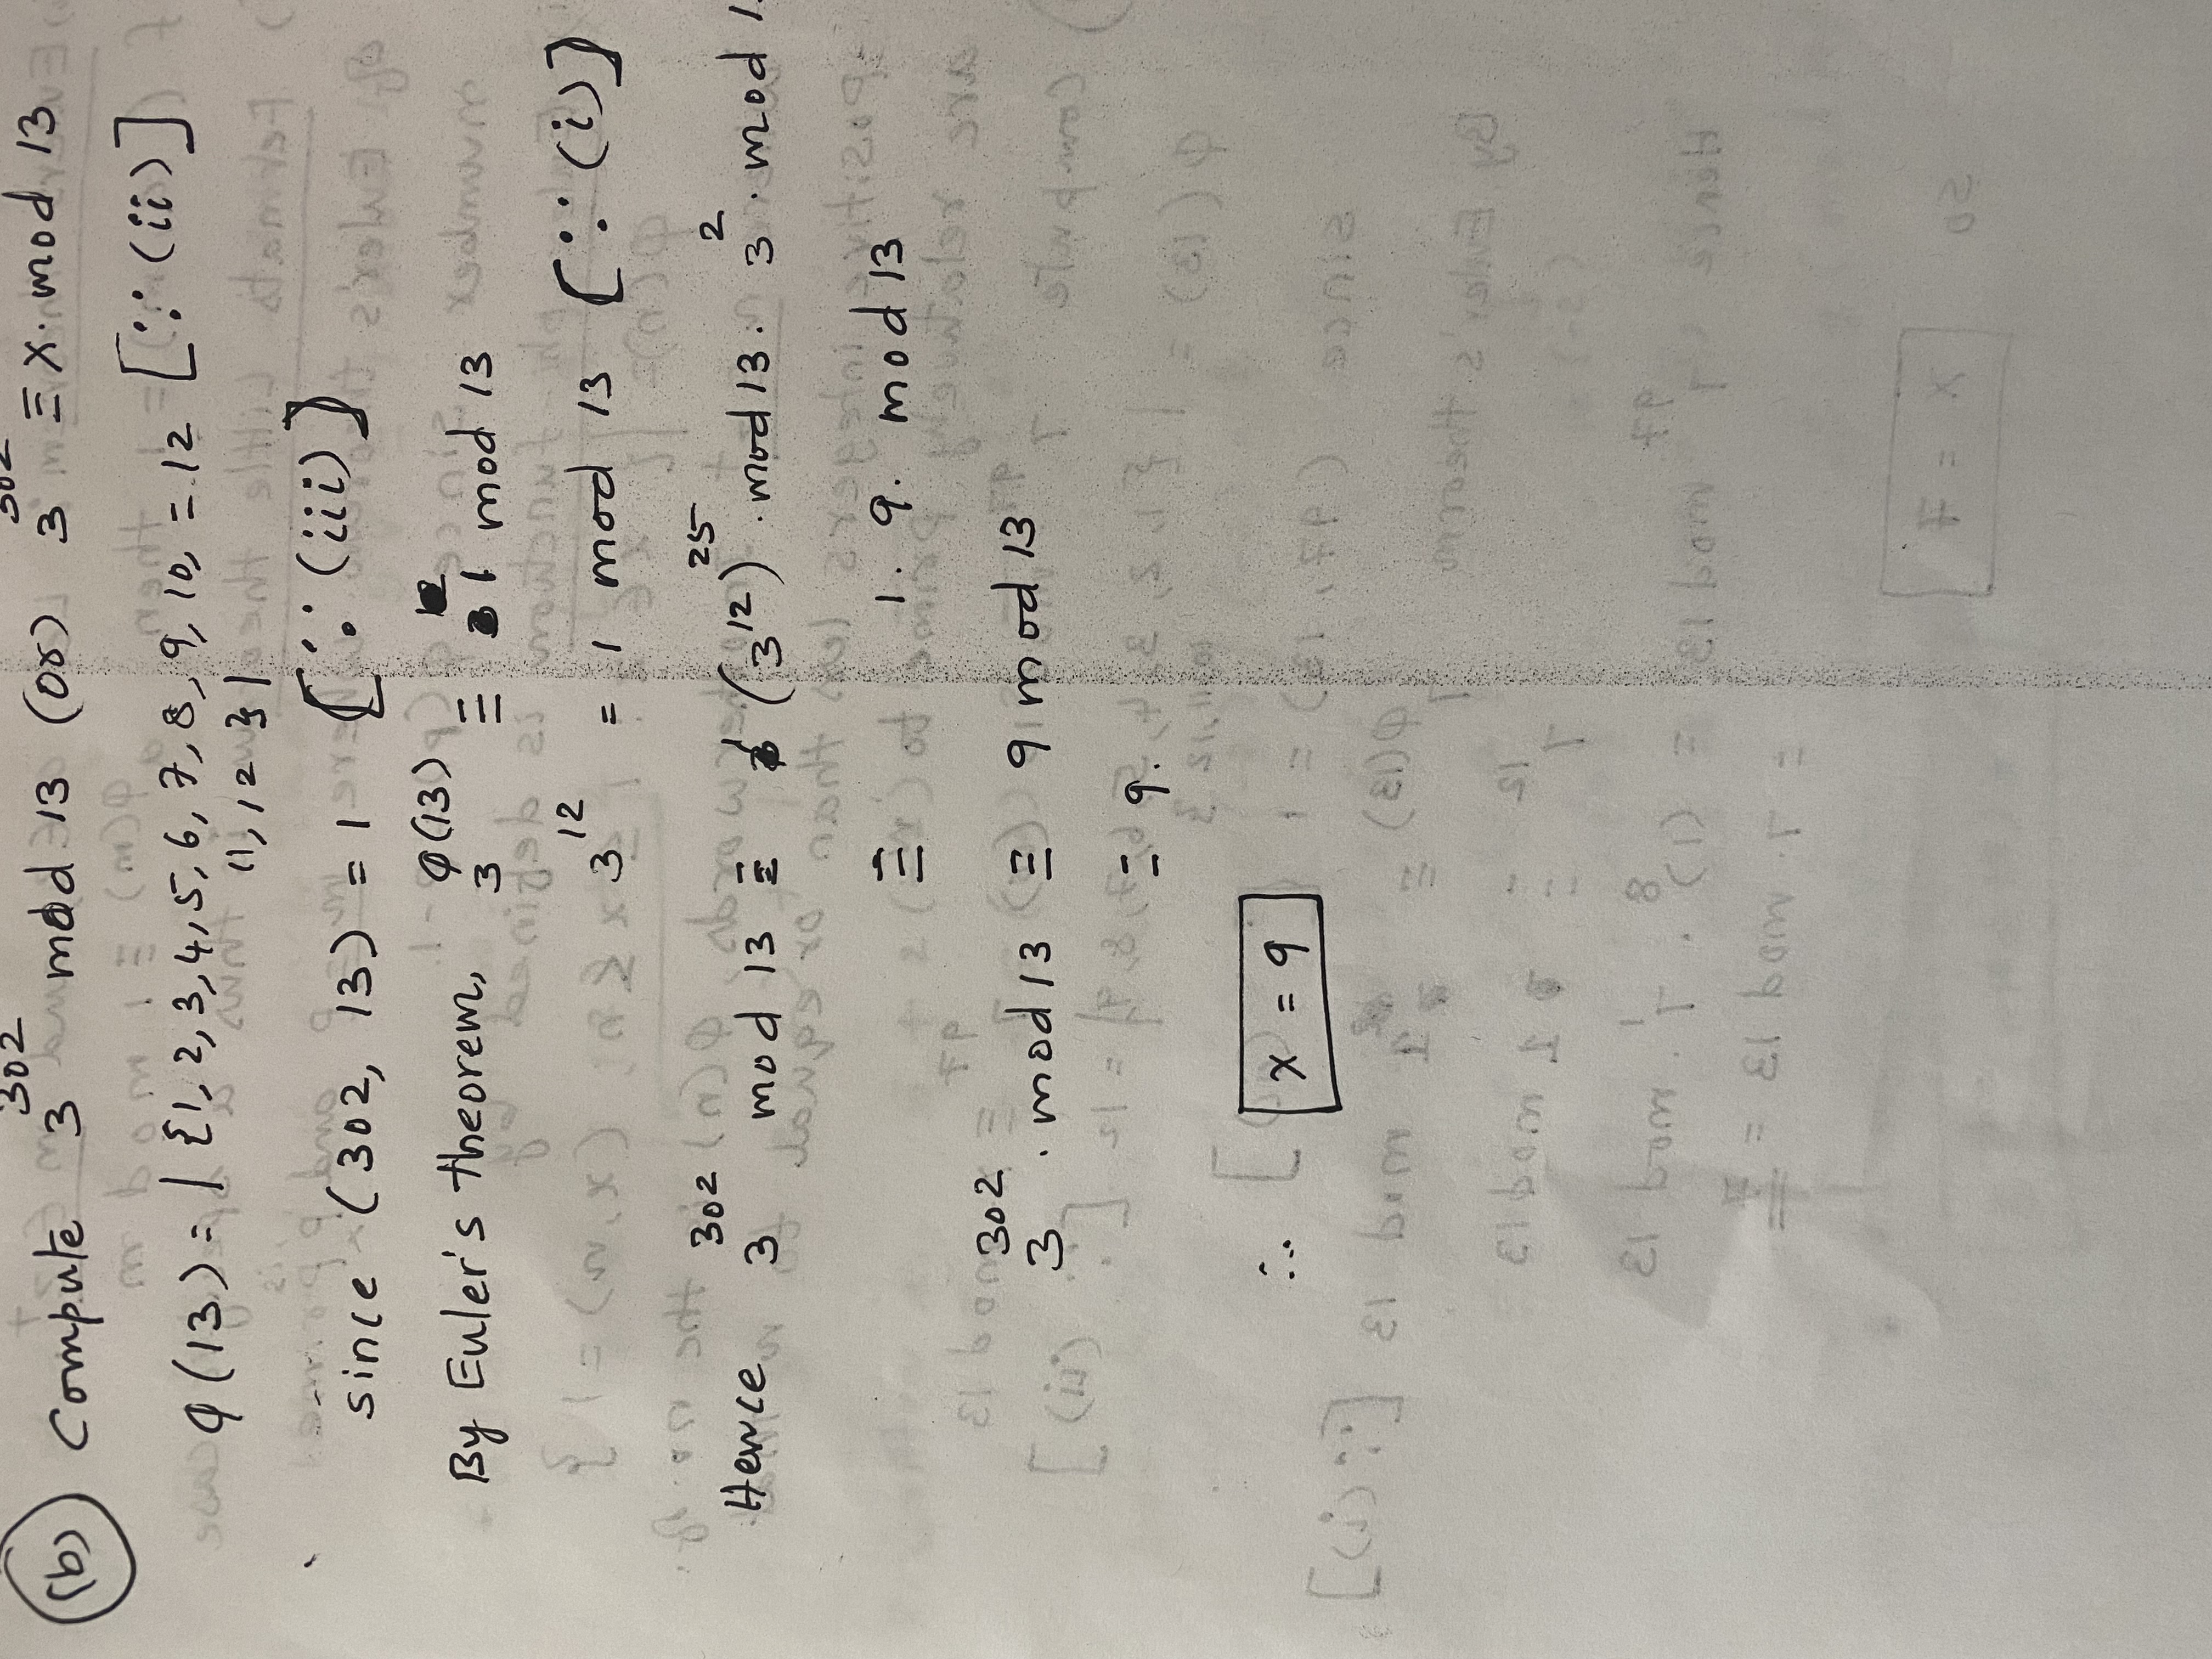 (b) Compute 3^302 mod 13 (or) 3^302 ≡ x. mod 13
φ(13) = | {1, 2, 3, 4, 5, 6, 7, 8, 9, 10, = 12 [∵ (ii)]
11, 12 } |
since (302, 13) = 1 [∵ (iii)]
By Euler's theorem, 3^φ(13) ≡ 1 mod 13
3^12 = 1 mod 13 [∵ (i)]
Hence 3^302 mod 13 ≡ (3^12)^25 . mod 13. 3^2 . mod 1
≡ 1. 9. mod 13
3^302 . mod 13 ≡ 9 mod 13
≡ 9.
∴ x = 9